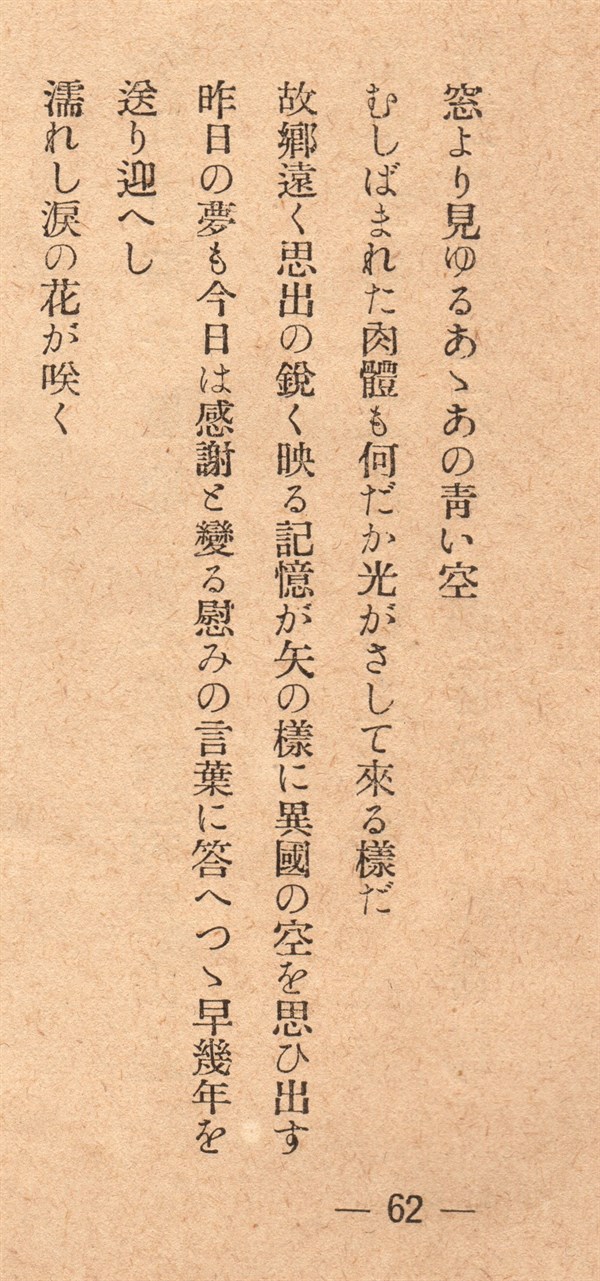 窓より見ゆるあゝあの靑い空
むしばまれた肉體も何だか光がさして來る樣だ
故鄕遠く思出の銳く映る記憶が矢の樣に異國の空を思ひ出す
昨日の夢も今日は感謝と變る慰みの言葉に答へつゝ早幾年を
送り迎へし
濡れし淚の花が咲く
— 62 —